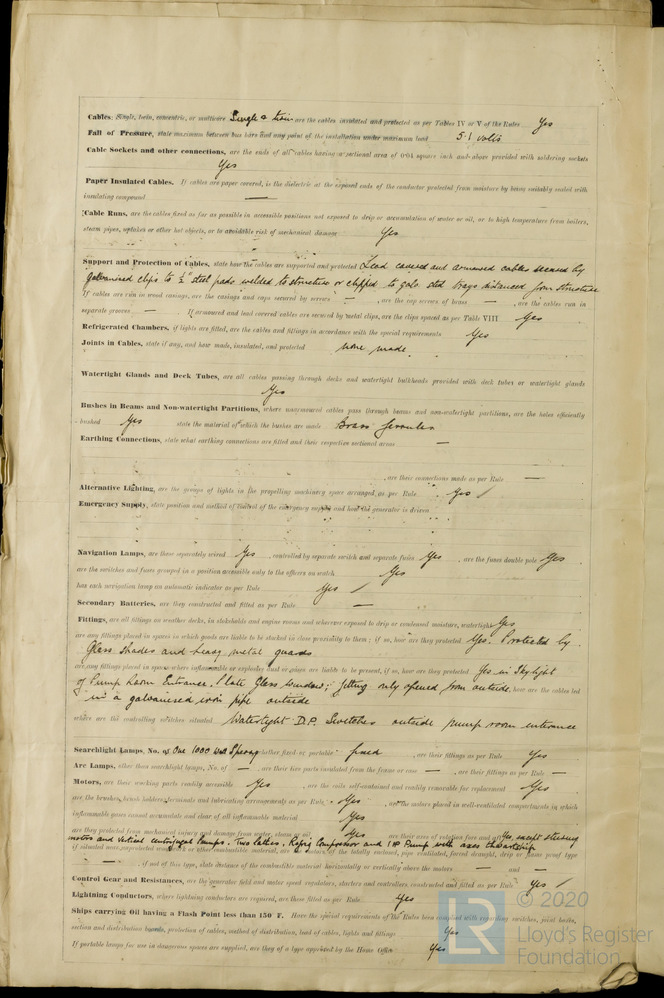 Cables: Single, twin, concentric, or multicore Single & twin are the cables insulated and protected as per Tables IV or V of the Rules Yes
Fall of Pressure, state maximum between bus bars and any point of the installation under maximum load 5.1 volts
Cable Sockets and other connections, are the ends of all cables having a sectional area of 0·04 square inch and above provided with soldering sockets
Yes
Paper Insulated Cables. If cables are paper covered, is the dielectric at the exposed ends of the conductor protected from moisture by being suitably sealed with
insulating compound —
Cable Runs, are the cables fixed as far as possible in accessible positions not exposed to drip or accumulation of water or oil, or to high temperature from boilers,
steam pipes, uptakes or other hot objects, or to avoidable risk of mechanical damage Yes
Support and Protection of Cables, state how the cables are supported and protected Lead covered and armoured cables secured by
galvanised clips to ½" steel pads welded to structure or clipped to galv. steel trays distanced from structure
If cables are run in wood casings, are the casings and caps secured by screws — , are the cap screws of brass — , are the cables run in
separate grooves — If armoured and lead covered cables are secured by metal clips, are the clips spaced as per Table VIII Yes
Refrigerated Chambers, if lights are fitted, are the cables and fittings in accordance with the special requirements Yes
Joints in Cables, state if any, and how made, insulated, and protected none made.
Watertight Glands and Deck Tubes, are all cables passing through decks and watertight bulkheads provided with deck tubes or watertight glands
Yes
Bushes in Beams and Non-watertight Partitions, where unarmoured cables pass through beams and non-watertight partitions, are the holes efficiently
bushed Yes state the material of which the bushes are made Brass ferrules
Earthing Connections, state what earthing connections are fitted and their respective sectional areas —
, are these connections made as per Rule —
Alternative Lighting, are the groups of lights in the propelling machinery space arranged as per Rule Yes /
Emergency Supply, state position and method of control of the emergency supply and how the generator is driven
Navigation Lamps, are these separately wired Yes , controlled by separate switch and separate fuses Yes , are the fuses double pole Yes
are the switches and fuses grouped in a position accessible only to the officers on watch Yes
has each navigation lamp an automatic indicator as per Rule Yes /
Secondary Batteries, are they constructed and fitted as per Rule —
Fittings, are all fittings on weather decks, in stokeholds and engine rooms and wherever exposed to drip or condensed moisture, watertight Yes
are any fittings placed in spaces in which goods are liable to be stacked in close proximity to them; if so, how are they protected Yes. Protected by
Glass shades and heavy metal guards
are any fittings placed in spaces where inflammable or explosive dust or gases are liable to be present, if so, how are they protected Yes in Skylight
of Pump Room Entrance. Plate Glass window; fitting only opened from outside, how are the cables led
in a galvanised iron pipe outside
where are the controlling switches situated Watertight D.P. Switches outside pump room entrance
Searchlight Lamps, No. of One 1000 Watt Sperry whether fixed or portable fixed , are their fittings as per Rule Yes
Arc Lamps, other than searchlight lamps, No. of — , are their live parts insulated from the frame or case — , are their fittings as per Rule —
Motors, are their working parts readily accessible Yes , are the coils self-contained and readily removable for replacement Yes
are the brushes, brush holders, terminals and lubricating arrangements as per Rule Yes , are the motors placed in well-ventilated compartments in which
inflammable gases cannot accumulate and clear of all inflammable material Yes
are they protected from mechanical injury and damage from water, steam or oil Yes are their axes of rotation fore and aft Yes, except steering
motors and vertical centrifugal Pumps. Two lathes, Refrig Compressor and 1 HP Pump with axes thwartship
— , if not of this type, state distance of the combustible material horizontally or vertically above the motors — and —
Control Gear and Resistances, are the generator field and motor speed regulators, starters and controllers constructed and fitted as per Rule Yes /
Lightning Conductors, where lightning conductors are required, are these fitted as per Rule Yes
Ships carrying Oil having a Flash Point less than 150° F. Have the special requirements of the Rules been complied with regarding switches, joint boxes,
section and distribution boards, protection of cables, method of distribution, lead of cables, lights and fittings Yes
If portable lamps for use in dangerous spaces are supplied, are they of a type approved by the Home Office Yes
© 2020
LR
Lloyd's Register
Foundation